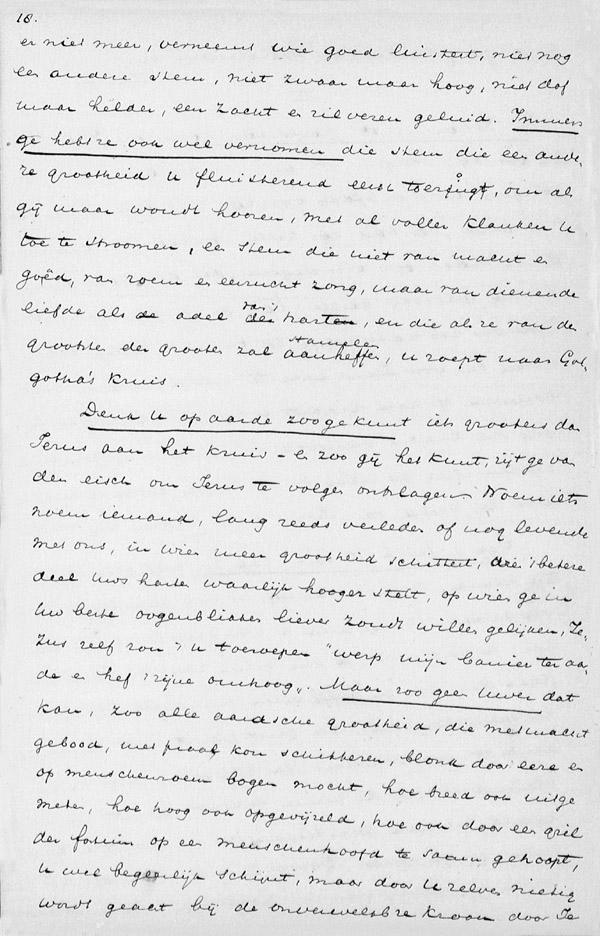 18.
er niet meer, verneemt wie goed luistert, niet nog
een andere stem, niet zwaar maar hoog, niet dof
maar helder, een zacht en zilveren geluid. Immers
ge hebt ze ook wel vernomen die stem die een ande-
re grootheid u fluisterend eerst, om als
gij maar woudt hooren, met al voller klanken u
toe te stroomen, een stem die niet van macht en
goed, van roem en eerzucht zong, maar van dienende
liefde als de adel van 's harten, en die als ze van den
grootsten der grooten zal stamelen, u roept naar Gol-
gotha's kruis.
Denk u op aarde zoo ge kunt iets grooters dan
Jezus aan het kruis – en zoo gij het kunt, zijt ge van
den eisch om Jezus te volgen ontslagen. Noem iets
noem iemand, lang reeds verleden of nog levende
met ons, in wien meer grootheid schittert, die 't betere
deel uws harten waarlijk hooger stelt, op wien ge in
uw beste oogenblikken liever zoudt willen gelijken, Je-
zus zelf zou 't u toeroepen "werp mijn banier ter aar-
de en hef zijne omhoog". Maar zoo geen uwer dat
kan, zoo alle aardsche grootheid, die met macht
gebood, met praal kon schitteren, blonk door eere en
op menschenroem bogen mocht, hoe breed ook uitge
meten, hoe hoog ook opgevijzeld, hoe ook door een gril
der fortuin op een menschenhoofd te saam gehoopt,
u wel begeerlijk schijnt, maar door u zelven nietig
wordt geacht bij de onverwelkbre kroon door Je